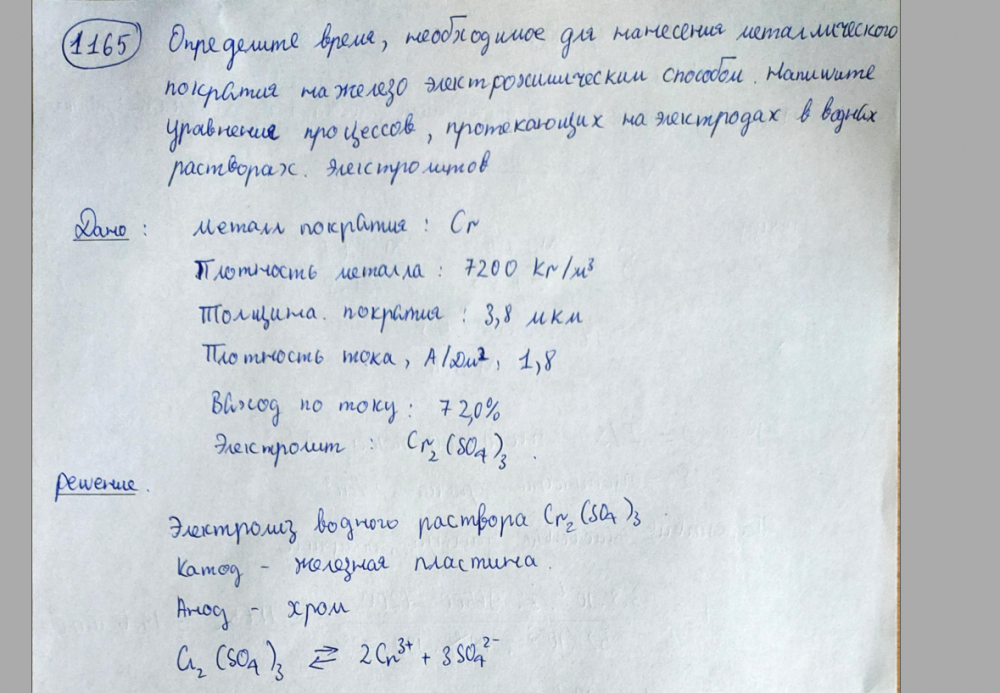 1165 Определите время, необходимое для нанесения металлического
покрытия на железо электрохимическим способом. Напишите
уравнения процессов, протекающих на электродах в водных
растворах. электролитов
Дано: металл покрытия: Cr
Плотность металла: 7200 кг/м³
Толщина. покрытия: 3,8 мкм
Плотность тока, А/дм², 1,8
Выход по току: 72,0%
Электролит: Cr₂(SO₄)₃.
Решение.
Электролиз водного раствора Cr₂(SO₄)₃.
Катод - железная пластина.
Анод - хром
Cr₂(SO₄)₃ ⇄ 2Cr³⁺ + 3SO₄²⁻